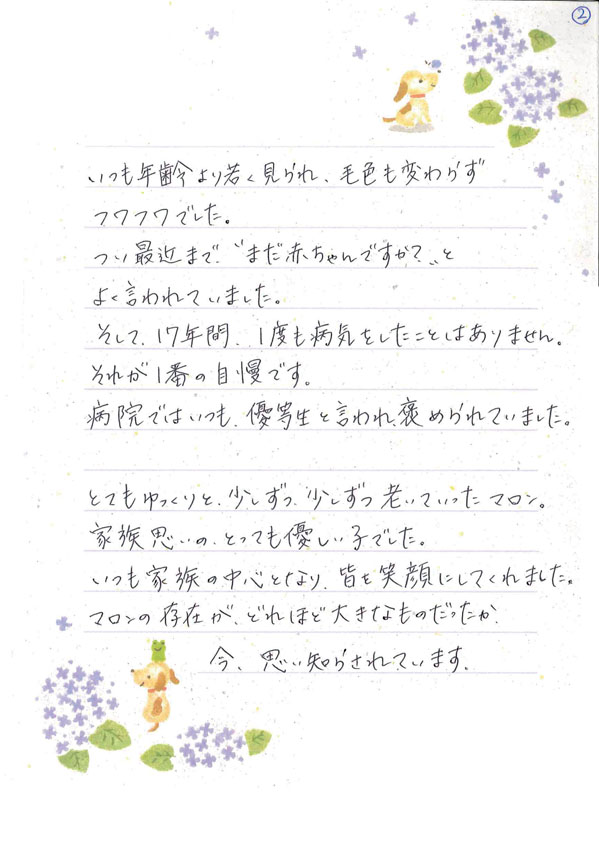 ②
いつも年齢より若く見られ、毛色も変わらず
フワフワでした。
つい最近まで〝まだ赤ちゃんですか?〟と
よく言われていました。
そして、17年間、1度も病気をしたことはありません。
それが1番の自慢です。
病院ではいつも、優等生と言われ、褒められていました。
とてもゆっくりと、少しずつ、少しずつ老いていったマロン。
家族思いの、とっても優しい子でした。
いつも家族の中心となり、皆を笑顔にしてくれました。
マロンの存在が、どれほど大きなものだったか、
今、思い知らされています。